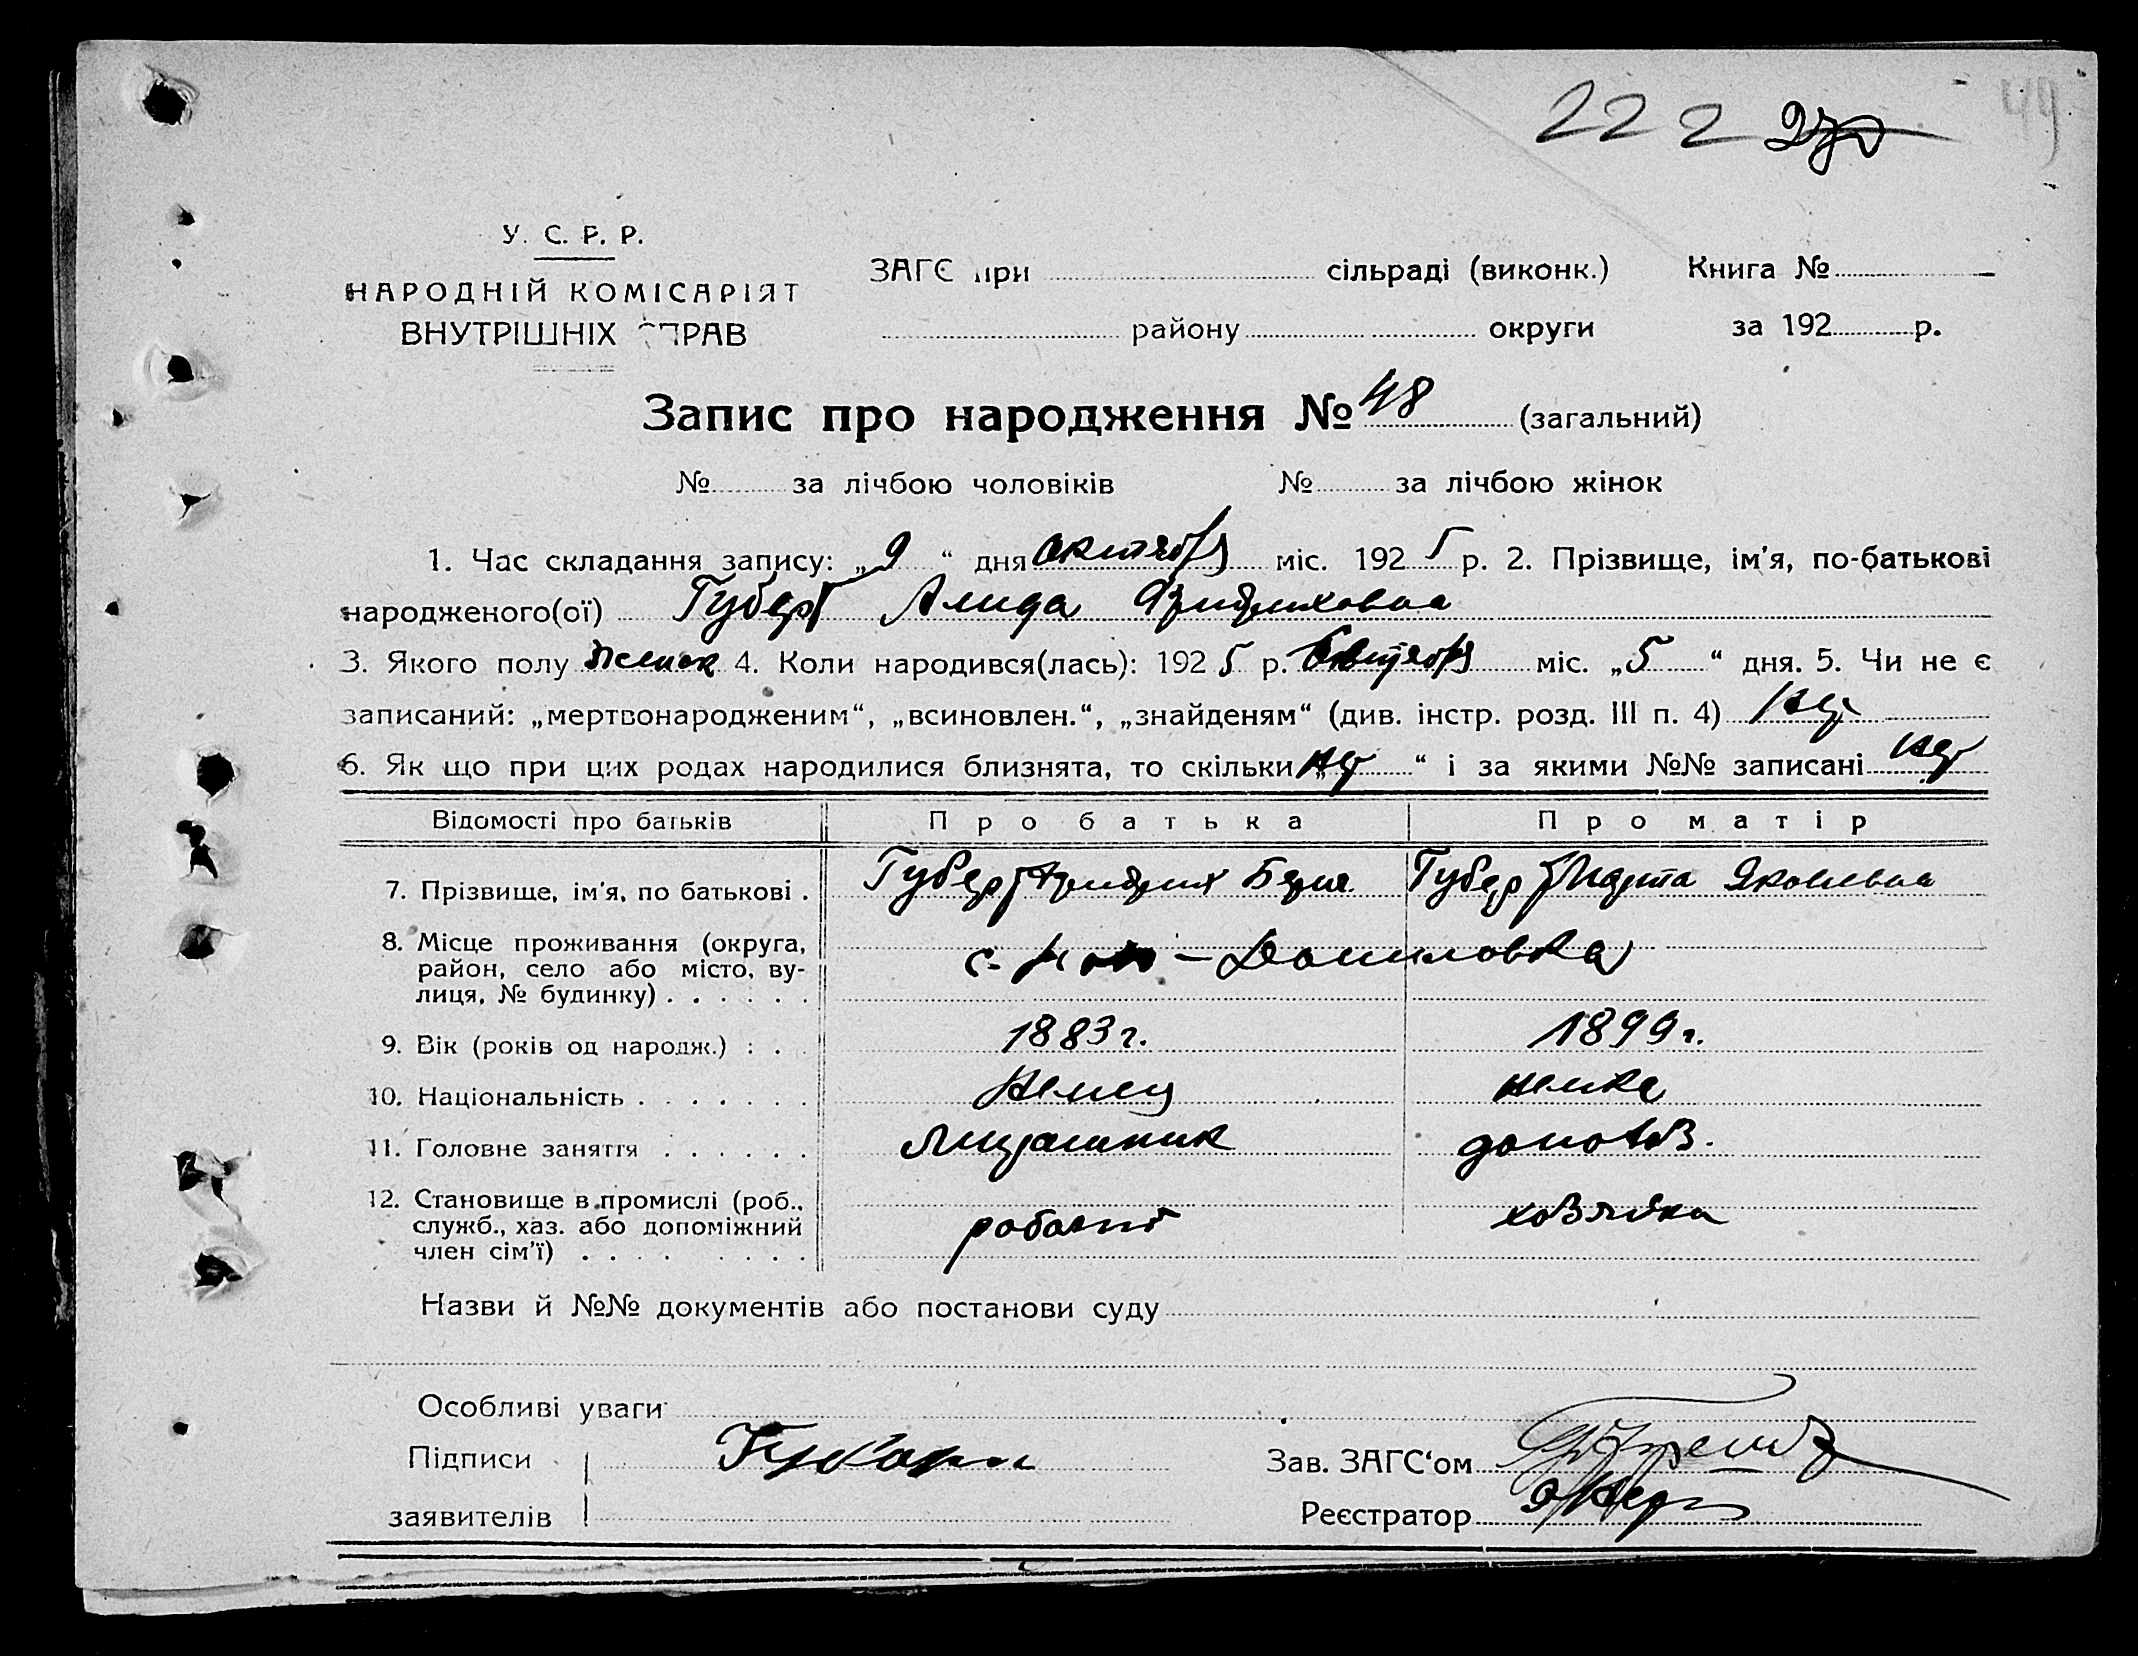 222 270 49
У. С. Р. Р.
НАРОДНІЙ КОМІСАРІЯТ
ВНУТРІШНІХ СПРАВ
ЗАГС при сільраді (виконк.) Книга №
району округи за 192 р.
Запис про народження № 48 (загальний)
№ за лічбою чоловіків № за лічбою жінок
1. Час складання запису: „9“ дня октября міс. 1925 р. 2. Прізвище, ім'я, по-батькові
народженого(ої) Губерт Алида Фридриховна
3. Якого полу женск 4. Коли народився(лась): 1925 р. Октября міс. „5“ дня. 5. Чи не є
записаний: „мертвонародженим“, „всиновлен.“, „знайденям“ (див. інстр. розд. III п. 4) нет
6. Як що при цих родах народилися близнята, то скільки „нет“ і за якими №№ записані нет
Відомості про батьків Про батька Про матір
7. Прізвище, ім'я, по батькові . Губерт Фридрих Губерт Марта Яковлевна
8. Місце проживання (округа,
район, село або місто, ву-
лиця, № будинку) . . . . . . с. Ново-Даниловка
9. Вік (років од народж.) : . 1883 г. 1899 г.
10. Національність . . . . . . . Немец немка
11. Головне заняття . . . . . . домохоз.
12. Становище в промислі (роб.,
служб., хаз. або допоміжний
член сім'ї) . . . . . . . хозяйка
Назви й №№ документів або постанови суду
Особливі уваги
Підписи Зав. ЗАГС‘ом
заявителів Реєстратор